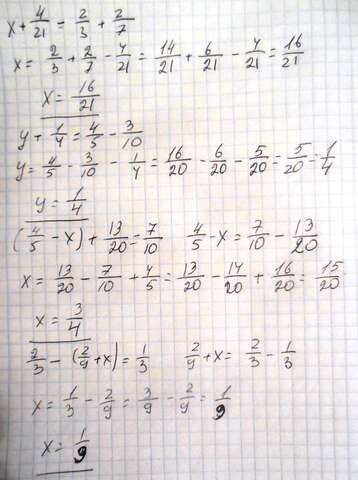 x + 4/21 = 2/3 + 2/7
x = 2/3 + 2/7 - 4/21 = 14/21 + 6/21 - 4/21 = 16/21
x = 16/21
y + 1/4 = 4/5 - 3/10
y = 4/5 - 3/10 - 1/4 = 16/20 - 6/20 - 5/20 = 5/20 = 1/4
y = 1/4
(4/5 - x) + 13/20 = 7/10 4/5 - x = 7/10 - 13/20
x = 13/20 - 7/10 + 4/5 = 13/20 - 14/20 + 16/20 = 15/20
x = 3/4
2/3 - (2/9 + x) = 1/3 2/9 + x = 2/3 - 1/3
x = 1/3 - 2/9 = 3/9 - 2/9 = 1/9
x = 1/9